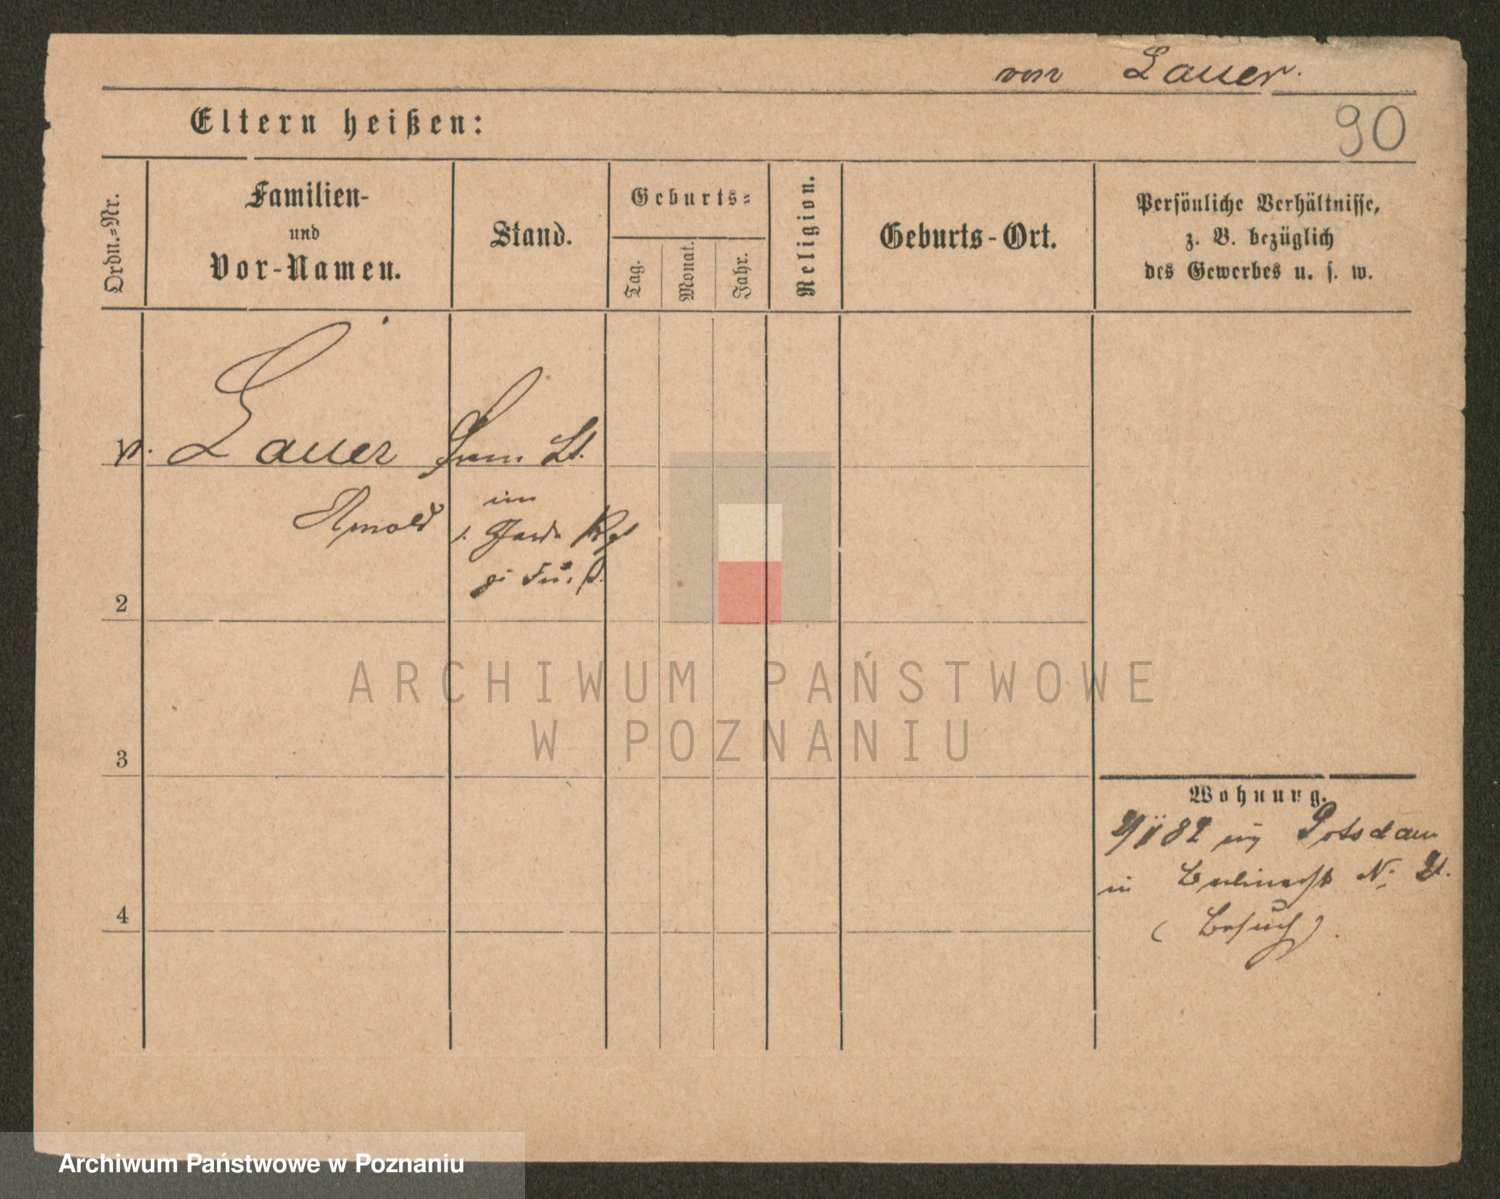 von Lauer.
Eltern heißen:
90
Ordn.=Nr.
Familien-
und
Vor-Namen.
Stand.
Geburts=
Tag.
Monat.
Jahr.
Religion.
Geburts-Ort.
Persönliche Verhältnisse,
z. B. bezüglich
des Gewerbes u. s. w.
v. Lauer
Arnold
Prem. Lt.
im
1. Garde Rgt
z. Fuß.
2
3
4
Wohnung.
82 Potsdam
in N.
(Besuch).
ARCHIWUM PAŃSTWOWE
W POZNANIU
Archiwum Państwowe w Poznaniu